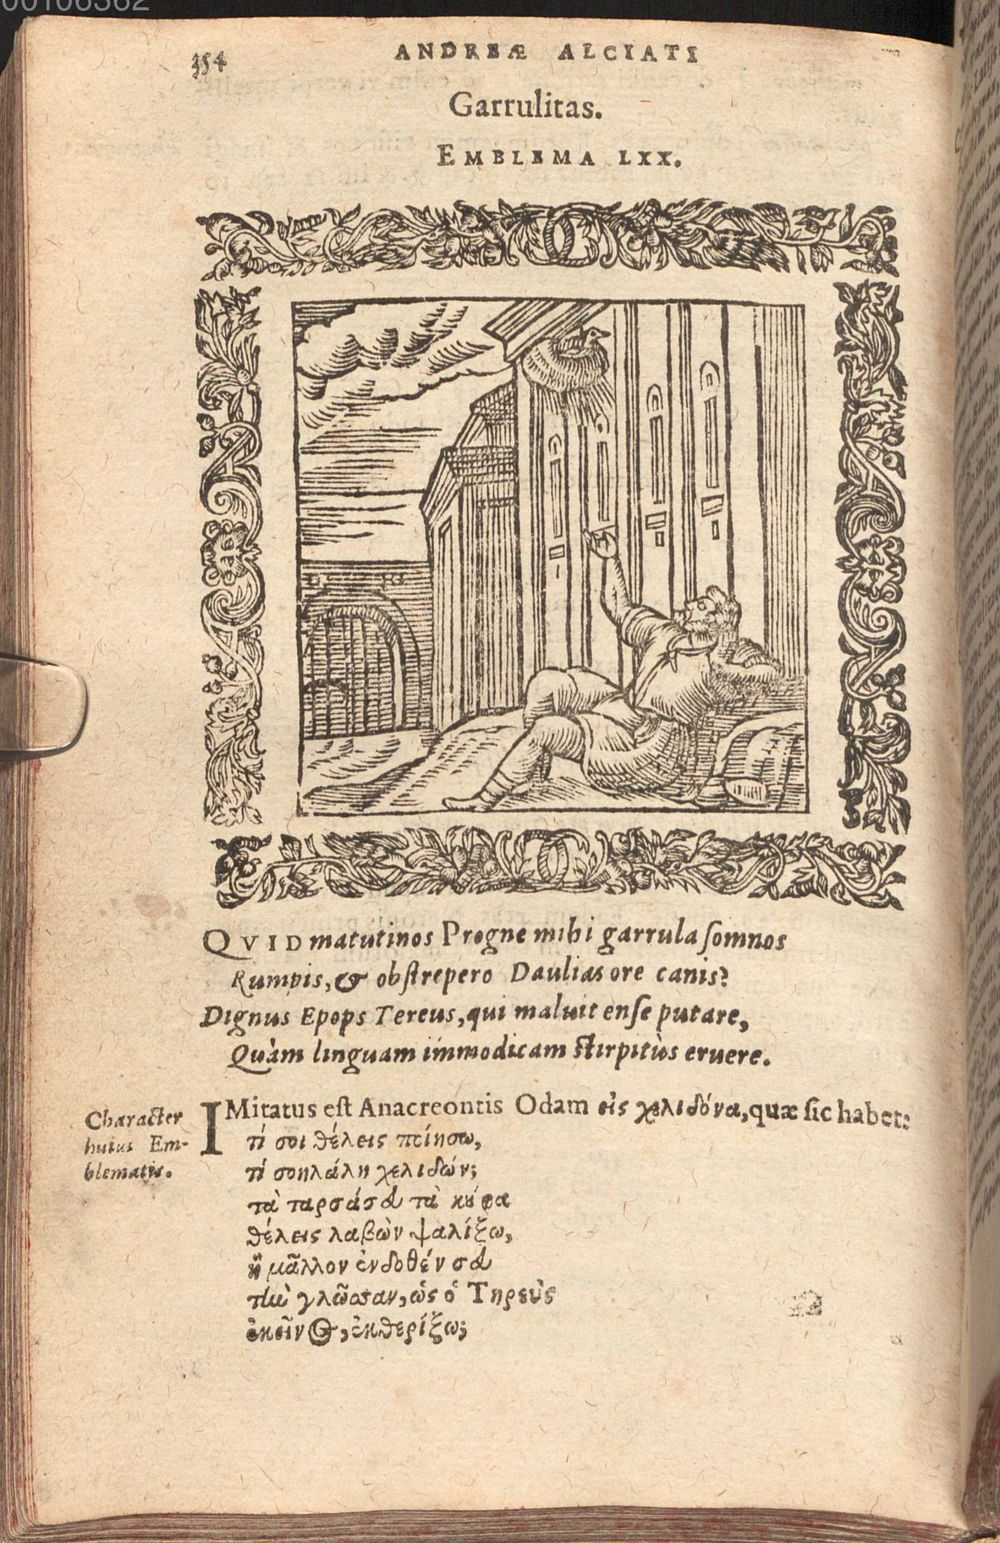 00106362
354
ANDREÆ ALCIATI
Garrulitas.
EMBLEMA LXX.
QVID matutinos Progne mihi garrula ſomnos
Rumpis, & obſtrepero Daulias ore canis?
Dignus Epops Tereus, qui maluit enſe putare,
Quàm linguam immodicam ſtirpitùs eruere.
Character
huius Em-
blematis.
IMitatus eſt Anacreontis Odam εἰς χελιδόνα, quæ ſic habet:
τί σοι θέλεις ποίησω,
τί σοι λάλη χελιδών;
τὰ ταρσά σȣ τὰ κȣ̃φα
θέλεις λαβὼν ψαλίξω,
ἢ μᾶλλον ἐνδοθέν σȣ
τὴν γλῶσσαν, ὡς ὁ Τηρεὺς
ἐκεῖνος, ἐκθερίξω;